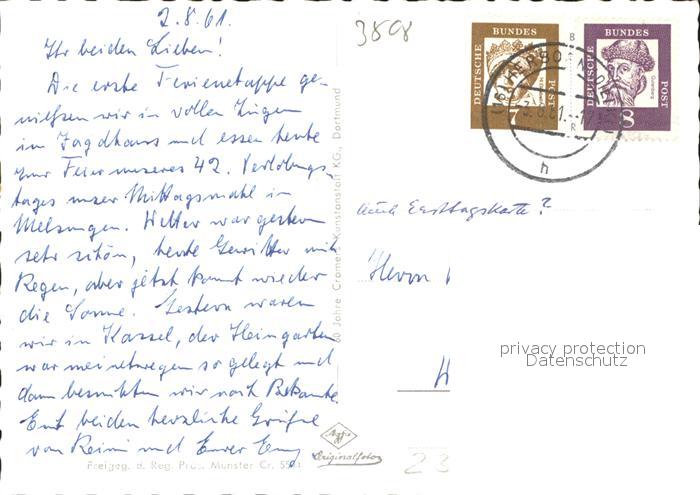 2.8.61.
Ihr beiden Lieben!
Die erste Ferienetappe ge-
nießen wir in vollen Zügen
im Jagdhaus und essen heute
zur Feier unseres 42. Verlobungs-
tages unser Mittagsmahl in
Melsungen. Wetter war gestern
sehr schön, heute Gewitter mit
Regen, aber jetzt kommt wieder
die Sonne. Gestern waren
wir in Kassel, der
war meinetwegen so gelegt und
dann besuchten wir noch Bekannte.
Euch beiden herzliche Grüße
von und Eurer
Freigeg. d. Reg. Präs. Münster Cr.
60 Jahre Cramers Kunstanstalt KG., Dortmund
Agfa
Originalfoto
3808
DEUTSCHE BUNDES POST
7
DEUTSCHE BUNDES POST
Gutenberg
8
h
Auch Ersttagskarte?
Herrn
privacy protection
Datenschutz
23